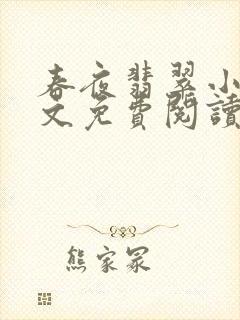 春夜翡翠小
文免費閱讀
熊家冢